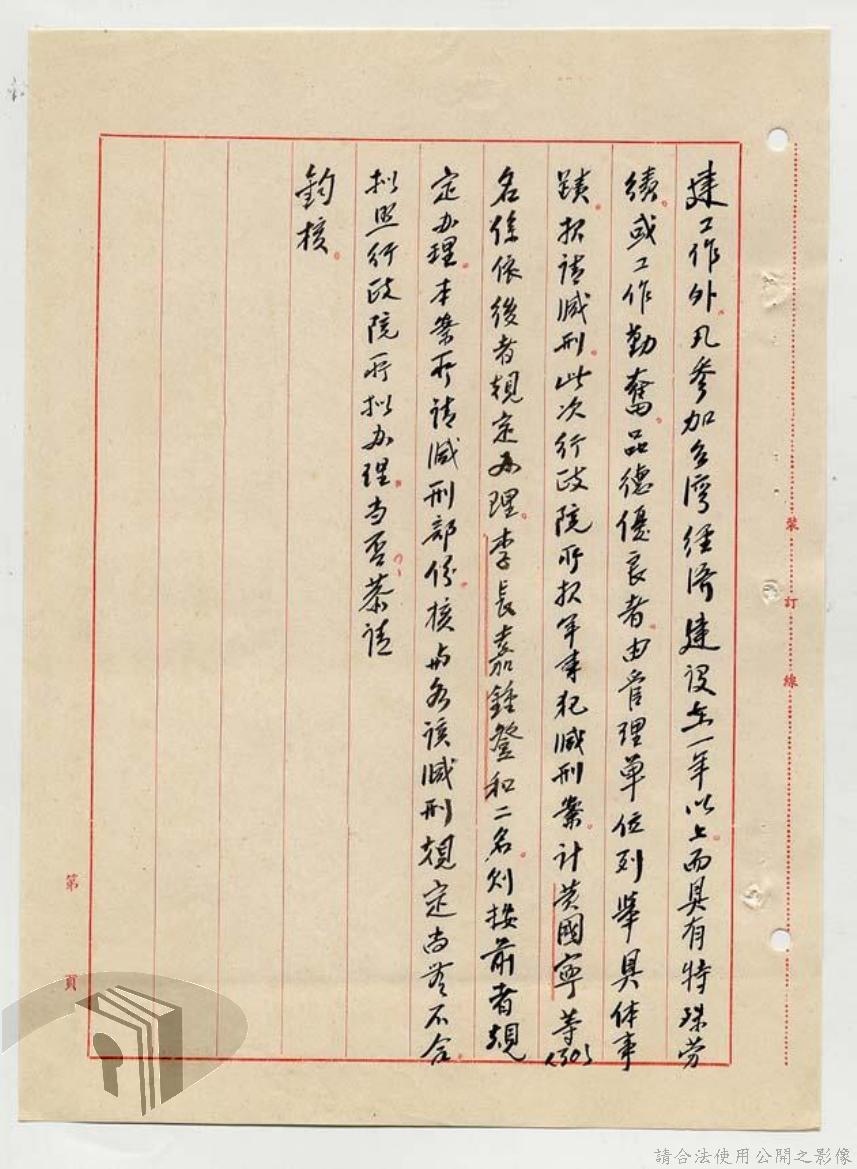 建工作外。凡參加台灣經濟建设在一年以上。而具有特殊劳
績。或工作勤奮。品德優良者。由管理單位列举具体事
蹟。报请减刑。此次行政院所报军事犯减刑案。计黄國寧等(130)
名係依後者規定办理。李長嘉鍾登和二名。则按前者規
定办理。本案所请减刑部份。核與各该减刑規定尚無不合。
拟照行政院所拟办理。当否。恭请
鈞核。
裝
訂
線
第 頁
請合法使用公開之影像